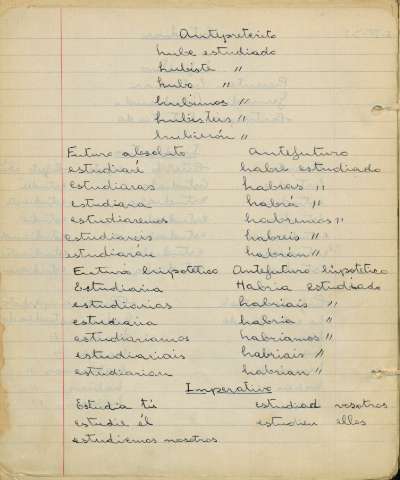 Antepreterito
hube estudiado
hubiste "
hubo "
hubimos "
hubisteis "
hubierón "
Futuro absoluto Antefuturo
estudiaré habré estudiado
estudiaras habras "
estudiara habrá "
estudiaremos habremos "
estudiareis habreis "
estudiarán habrán "
Futuro hipotético Antefuturo hipotético
Estudiaria Habria estudiado
estudiarias habriais "
estudiaria habria "
estudiariamos habriamos "
estudiariais habriais "
estudiarian habrian "
Imperativo
Estudia tú estudiad vosotros
estudie él estudien ellos
estudiemos nosotros